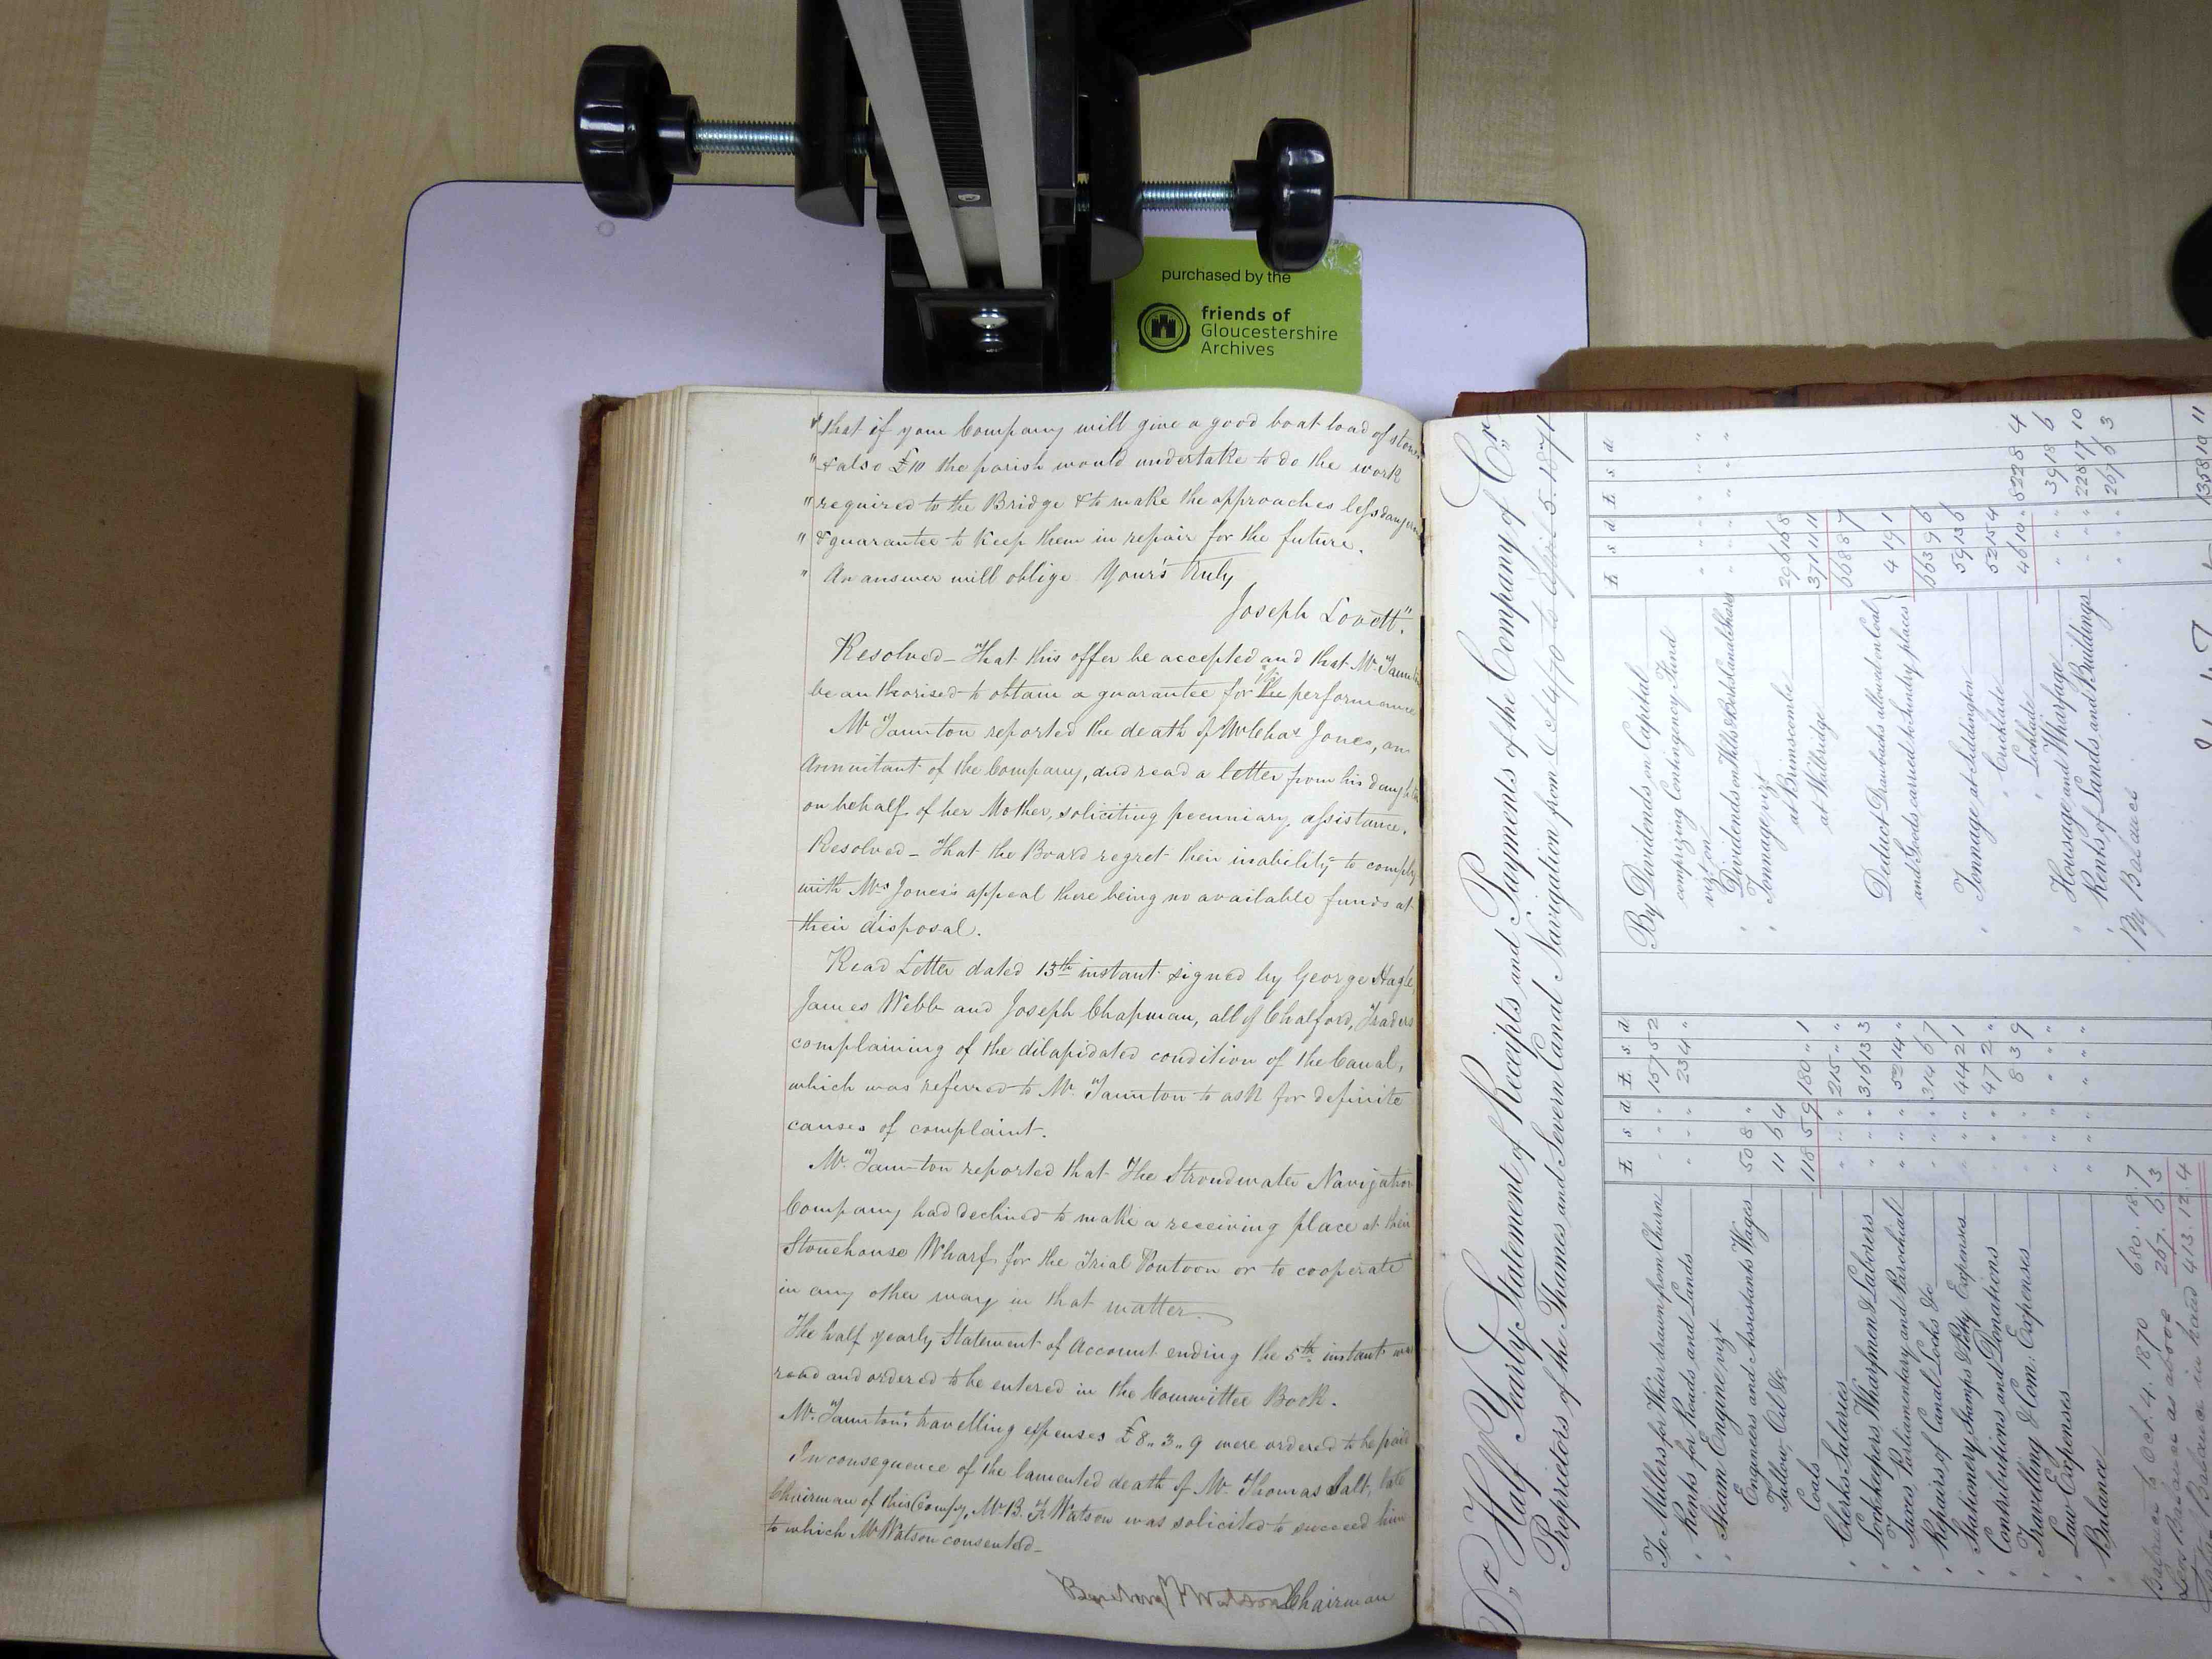 purchased by the
friends of
Gloucestershire
Archives
" that if your Company will give a good boat load of stone
" & also £10 the parish would undertake to do the work
" required to the Bridge & to make the approaches less
" & guarantee to keep them in repair for the future.
" An answer will oblige Your's truly
Joseph Lovett."
Resolved – That this offer be accepted and that Mr. Taunton
be authorised to obtain a guarantee for the performance
Mr. Taunton reported the death of Mr Chas. Jones, an
Annuitant of the Company, and read a letter from his daughter
on behalf of her Mother, soliciting pecuniary assistance.
Resolved – That the Board regret their inability to comply
with Mrs Jones's appeal there being no available funds at
their disposal.
Read Letter dated 13th instant signed by George
James Webb and Joseph Chapman, all of Chalford, Traders
complaining of the dilapidated condition of the Canal,
which was referred to Mr. Taunton to ask for definite
causes of complaint.
Mr. Taunton reported that The Stroudwater Navigation
Company had declined to make a receiving place at their
Stonehouse Wharf for the Trial Pontoon or to cooperate
in any other way in that matter.
The half yearly Statement of Account ending the 5th instant was
read and ordered to be entered in the Committee Book.
Mr. Taunton's travelling expenses £8.. 3.. 9 were ordered to be paid
In consequence of the lamented death of Mr. Thomas Salt, late
Chairman of this Compy, Mr. B. F. Watson was solicited to succeed him
to which Mr Watson consented –
Watson Chairman
Dr. Half Yearly Statement of Receipts and Payments of the Company of Cr.
Proprietors of the Thames and Severn Canal Navigation from Oct 4 1870 to April 5. 1871
£ s d £ s d
To Millers for Water drawn from Churn " " " 157 5 2
" Rents for Roads and Lands " " " 23 4 "
" Steam Engine vizt.
Engineers and Assistants Wages 50 8 "
Tallow, Oil &c 11 6 4
Coals 118 5 9 180 " 1
" Clerks Salaries " " " 215 " "
" Lockkeepers, Wharfmen & Laborers " " " 316 13 3
" Taxes, Parliamentary and Parochial " " " 52 14 "
" Repairs of Canal, Locks &c " " " 314 6 7
" Stationery, Stamps & Petty Expenses " " " 44 2 1
" Contributions and Donations " " " 47 2 "
" Travelling & Com. Expenses " " " 8 3 9
" Law Expenses " " " " " "
" Balance " " " " " "
Balance to Oct. 4. 1870 680. 18. 7
Less Balance as above 267. 6. 3
Balance in hand 413. 12. 4
£ s d £ s d
By Dividends on Capital
comprizing Contingency Fund
vizt on " " "
" Dividends on Wilts & Berks Canal Shares " " "
" Tonnage vizt
at Brimscombe 296 16 8
at Wallbridge 371 11 11
668 8 7
Deduct Drawbacks allowed on Coal
and Goods carried to Sundry places 4 19 1
663 9 6
" Tonnage at Siddington 59 13 6
" Cricklade 52 15 4
" Lechlade 46 10 " 822 8 4
" Housage and Wharfage " " " 39 18 6
" Rents of Lands and Buildings " " " 228 17 10
" By Balance " " " 267 6 3
1358 10 11